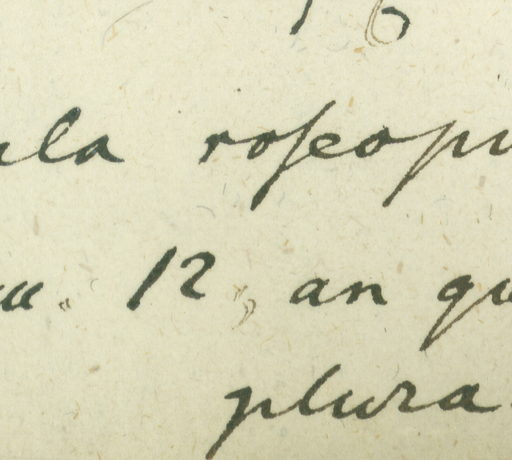 ula roseopu
u. 12, an qu
plura.